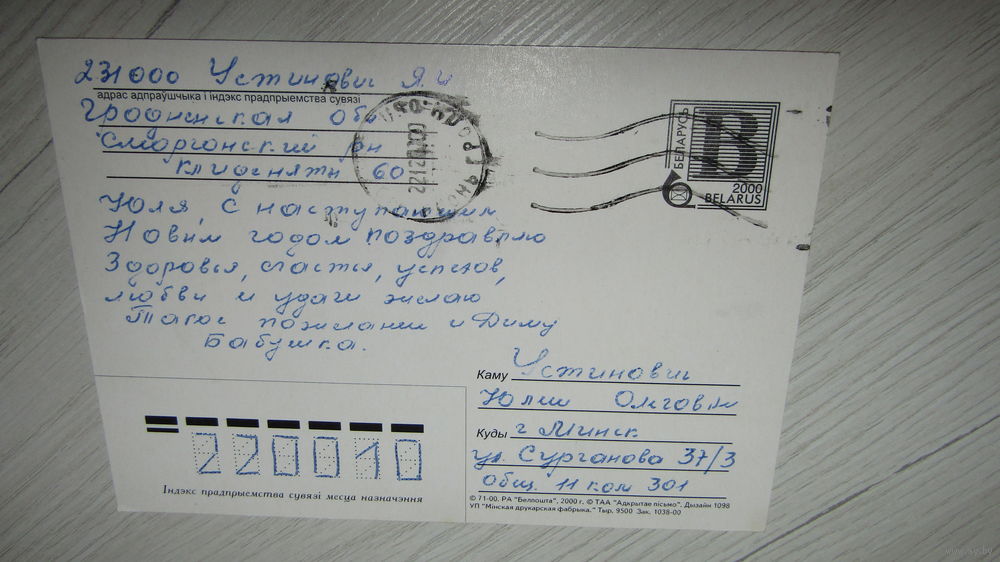 231000 Устинович Я.И
адрас адпраўшчыка і індэкс прадпрыемства сувязі
Гродненская обл
Сморгонский рн
Клиденяты 60
22122000
БЕЛАРУСЬ
B
2000
BELARUS
Юля, с наступающим
Новым годом поздравляю
Здоровья, счастья, успехов,
любви и удачи желаю
Такое пожелание и Диму
Бабушка.
Каму Устинович
Юлии Олеговне
Куды г Минск
ул. Сурганова 37/3
общ. 11 ком 301
220010
Індэкс прадпрыемства сувязі месца назначэння
© 71-00. РА "Белпошта", 2000 г. © ТАА "Адкрытае пісьмо". Дызайн 1098
УП "Мінская друкарская фабрыка." Тыр. 9500 Зак. 1038-00
www.ay.by